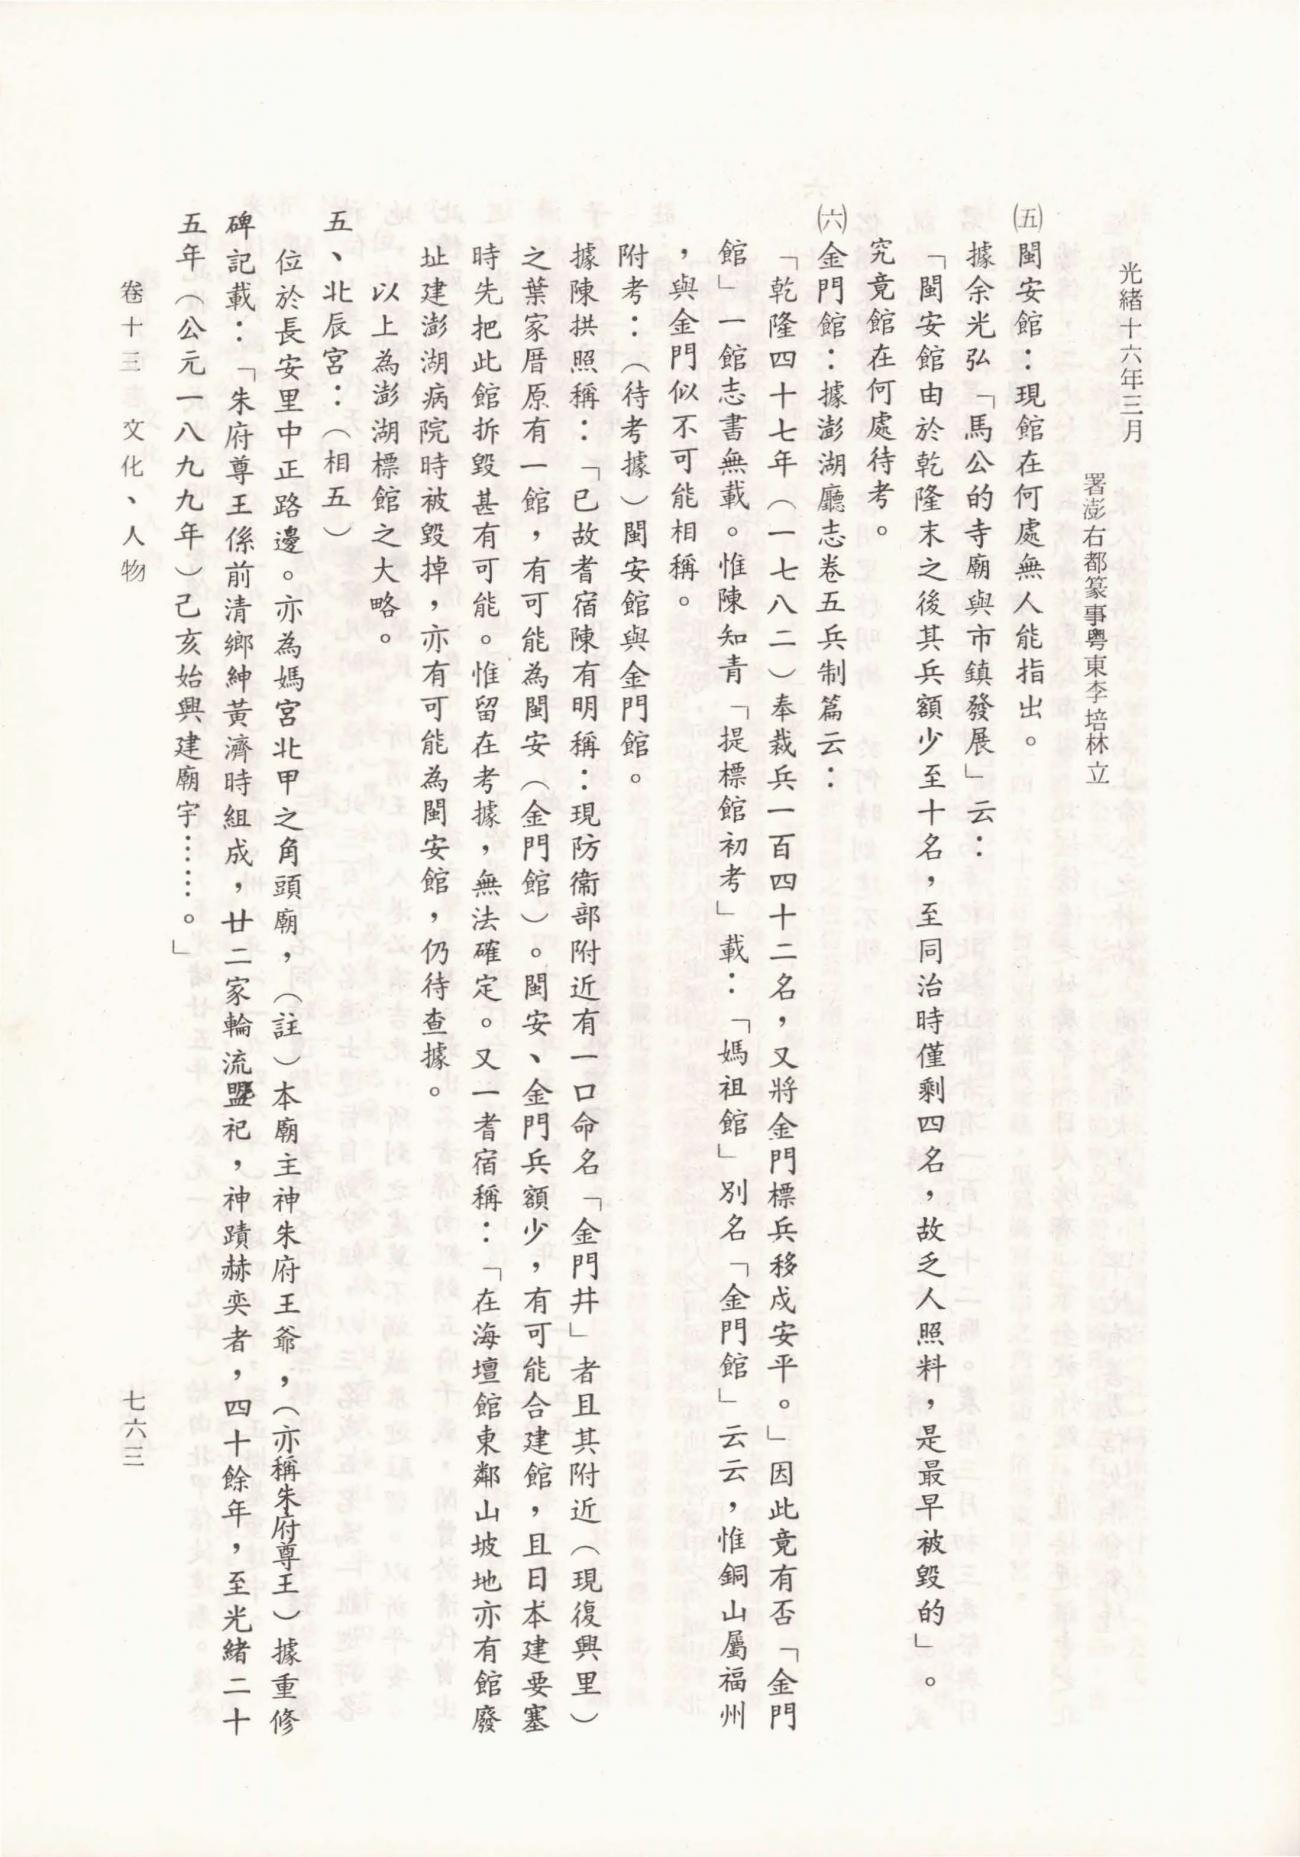 光緒十六年三月
署澎右都篆事粵東李培林立
㈤閩安館：現館在何處無人能指出。
據余光弘「馬公的寺廟與市鎮發展」云：
「閩安館由於乾隆末之後其兵額少至十名，至同治時僅剩四名，故乏人照料，是最早被毀的」。
究竟館在何處待考。
㈥金門館：據澎湖廳志卷五兵制篇云：
「乾隆四十七年（一七八二）奉裁兵一百四十二名，又將金門標兵移戍安平。」因此竟有否「金門
館」一館志書無載。惟陳知青「提標館初考」載：「媽祖館」別名「金門館」云云，惟銅山屬福州
，與金門似不可能相稱。
附考：（待考據）閩安館與金門館。
據陳拱照稱：「已故耆宿陳有明稱：現防衞部附近有一口命名「金門井」者且其附近（現復興里）
之葉家厝原有一館，有可能為閩安（金門館）。閩安、金門兵額少，有可能合建館，且日本建要塞
時先把此館拆毀甚有可能。惟留在考據，無法確定。又一耆宿稱：「在海壇館東鄰山坡地亦有館廢
址建澎湖病院時被毀掉，亦有可能為閩安館，仍待查據。
以上為澎湖標館之大略。
五、北辰宮：（相五）
位於長安里中正路邊。亦為媽宮北甲之角頭廟，（註）本廟主神朱府王爺，（亦稱朱府尊王）據重修
碑記載：「朱府尊王係前清鄉紳黃濟時組成，廿二家輪流盟祀，神蹟赫奕者，四十餘年，至光緒二十
五年（公元一八九九年）己亥始興建廟宇……。」
卷十三　文化、人物
七六三